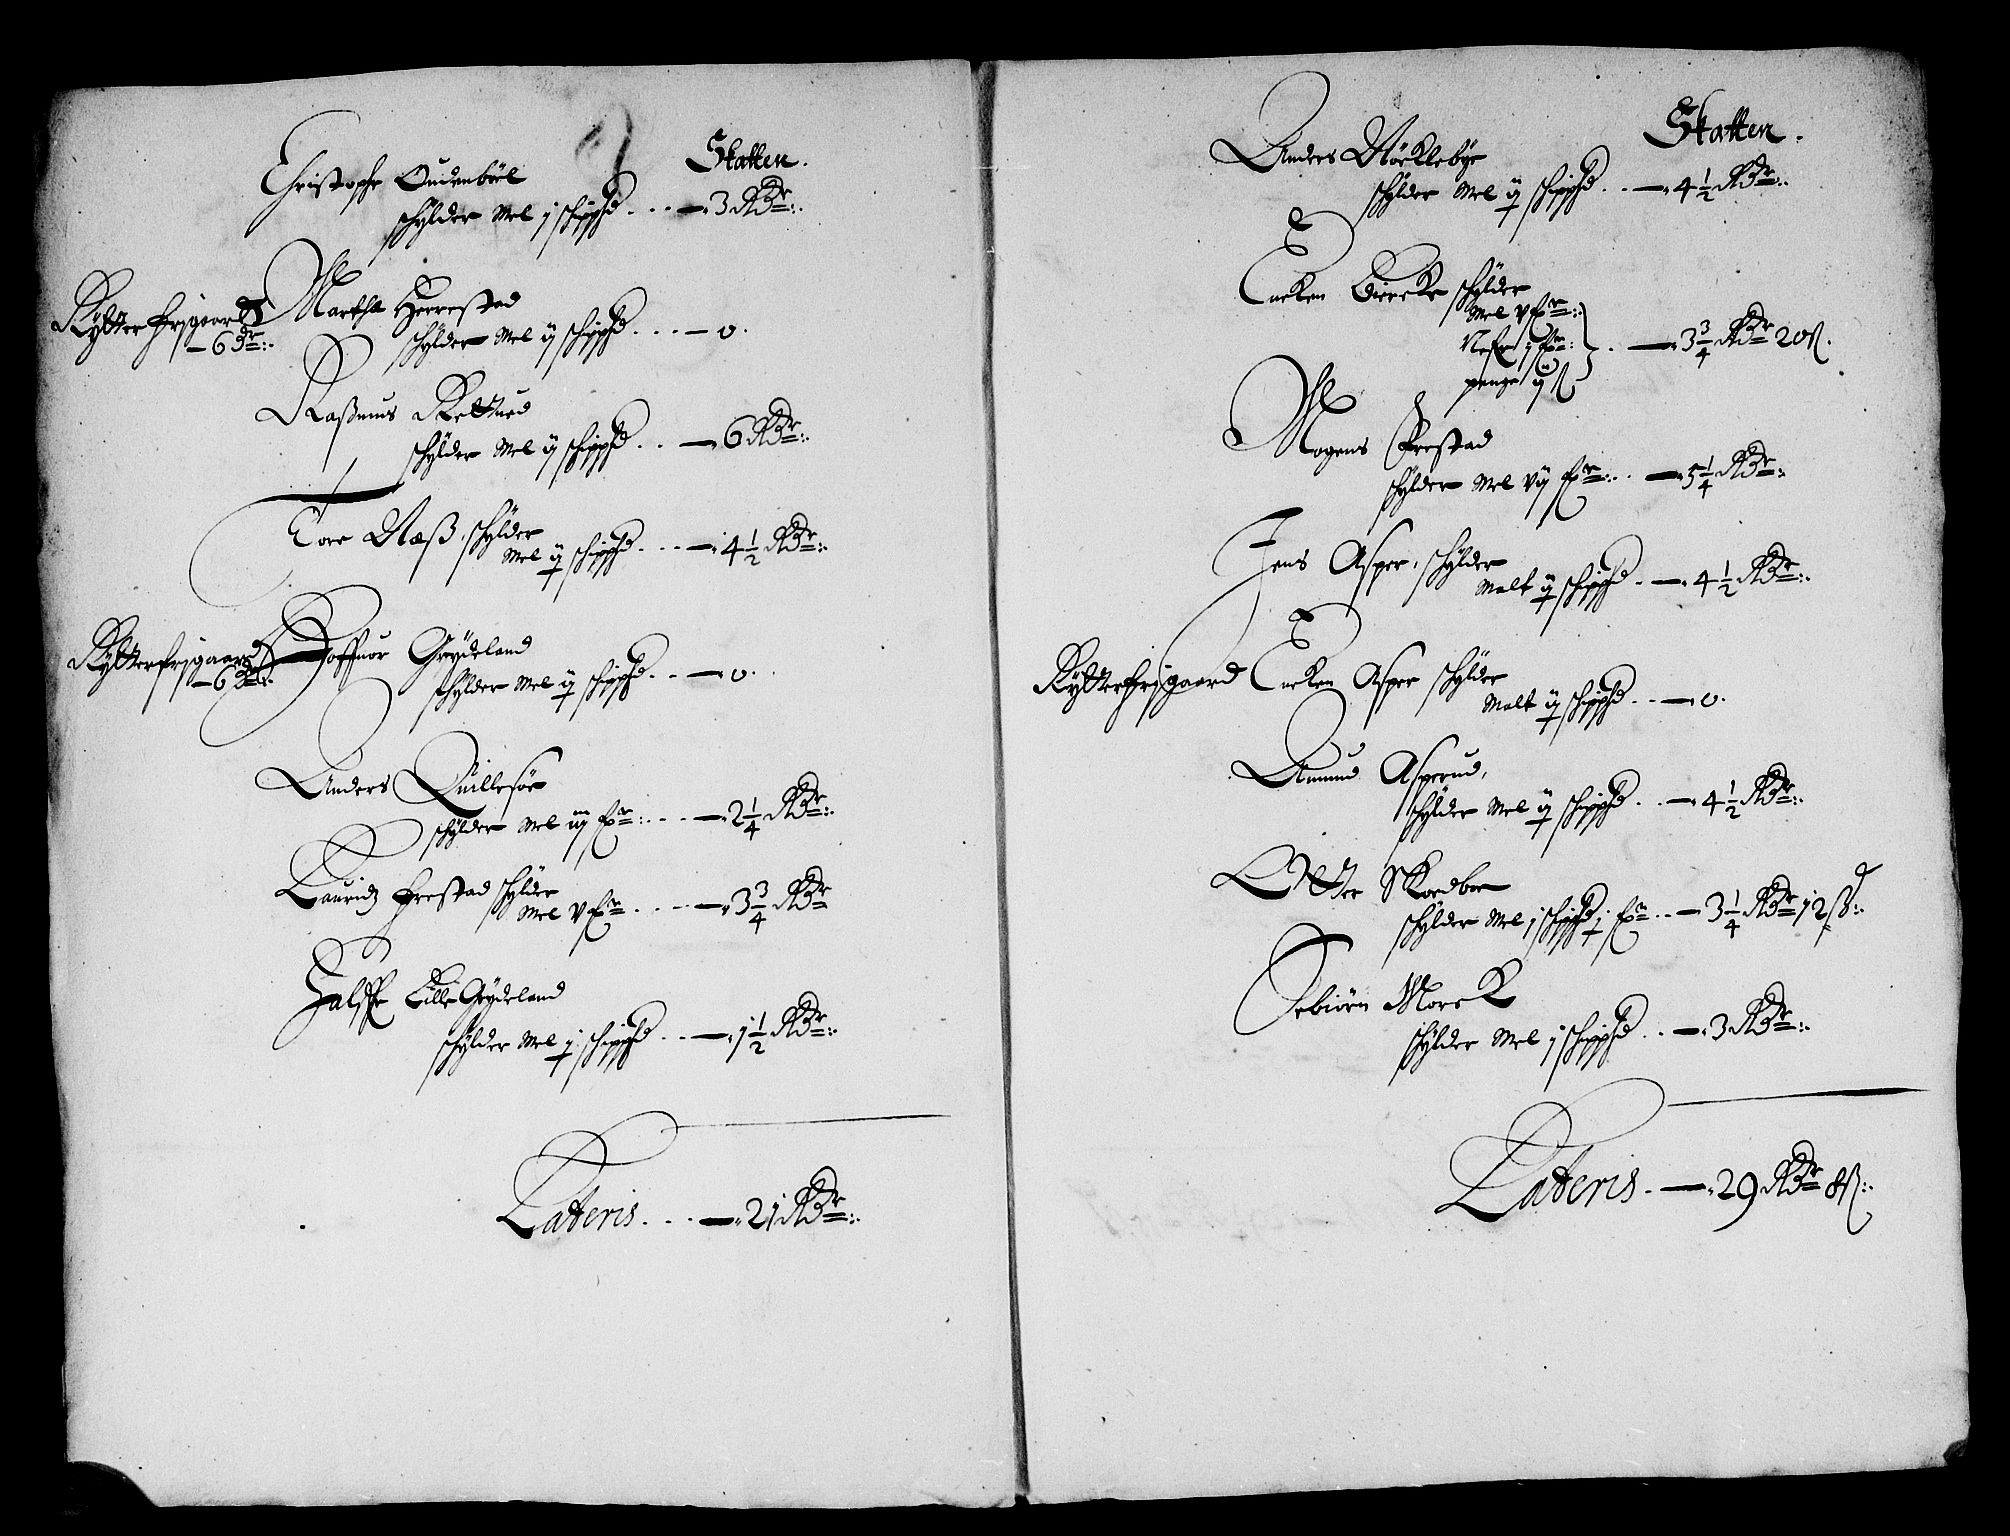 Skatten.
Christopher Oudenböel
schylder Mel j schippd . . . — 3 Rdr:
Rytter frjgaard
— 6 Dr:
Martha Herrestad
schylder Mel ij schippd . . . — 0.
Rassmus Rettued
schylder Mel ij schippd . . . — 6 Rdr:
Tore Næss, schylder
Mel ij schippd . . . — 4 1/2 Rdr:
Rytterfrjgaard
— 6 Rdr:
Goffuor Grydeland
schylder Mel ij schippd . . . — 0.
Anders Quillesöe
schylder Mel iij fr: . . . — 2 1/4 Rdr:
Lauridz Frestad schylder
Mel V fr . . . — 3 3/4 Rdr
Lille Grydeland
schylder Mel j schippd . . . — 1 1/2 Rdr:
Lateris . . . — 21 Rdr:
Skatten.
Anders Nöcklebye
schylder Mel ij schippd . . — 4 1/2 Rdr:
Encken Biercke schylder
Mel V fr:
j fr:
penge ij ß
. — 3 3/4 Rdr 20 ß.
Mogens Prestad
schylder Mel Vij fr: . . — 5 1/4 Rdr:
Jens Asper, schylder
Malt ij schippd . — 4 1/2 Rdr:
Rytterfrjgaard
Encken Asper schylder
Malt ij schippd . . — 0.
Amund Asperud,
schylder Mel ij schippd . . — 4 1/2 Rdr:
Otter Skordboe
schylder Mel j schippd j fr . . — 3 1/4 Rdr 12 ß:
Torbiörn Morck
schylder Mel j schippd . . — 3 Rdr:
Lateris . — 29 Rdr 8 ß: